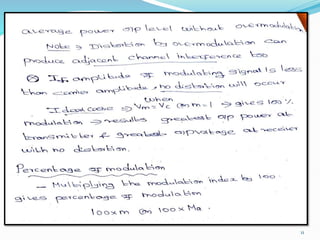 average power o/p level without overmodulation
Note → Distortion by overmodulation can
produce adjacent channel interference too
If amplitude of modulating signal is less
than carrier amplitude, no distortion will occur
Ideal case → when Vm = Vc (or) m = 1 → gives 100 %
modulation → results greatest o/p power at
transmitter & greatest o/p voltage at receiver
with no distortion.
Percentage of modulation
— Multiplying the modulation index by 100
gives percentage of modulation
100xm (or) 100xMa.
11